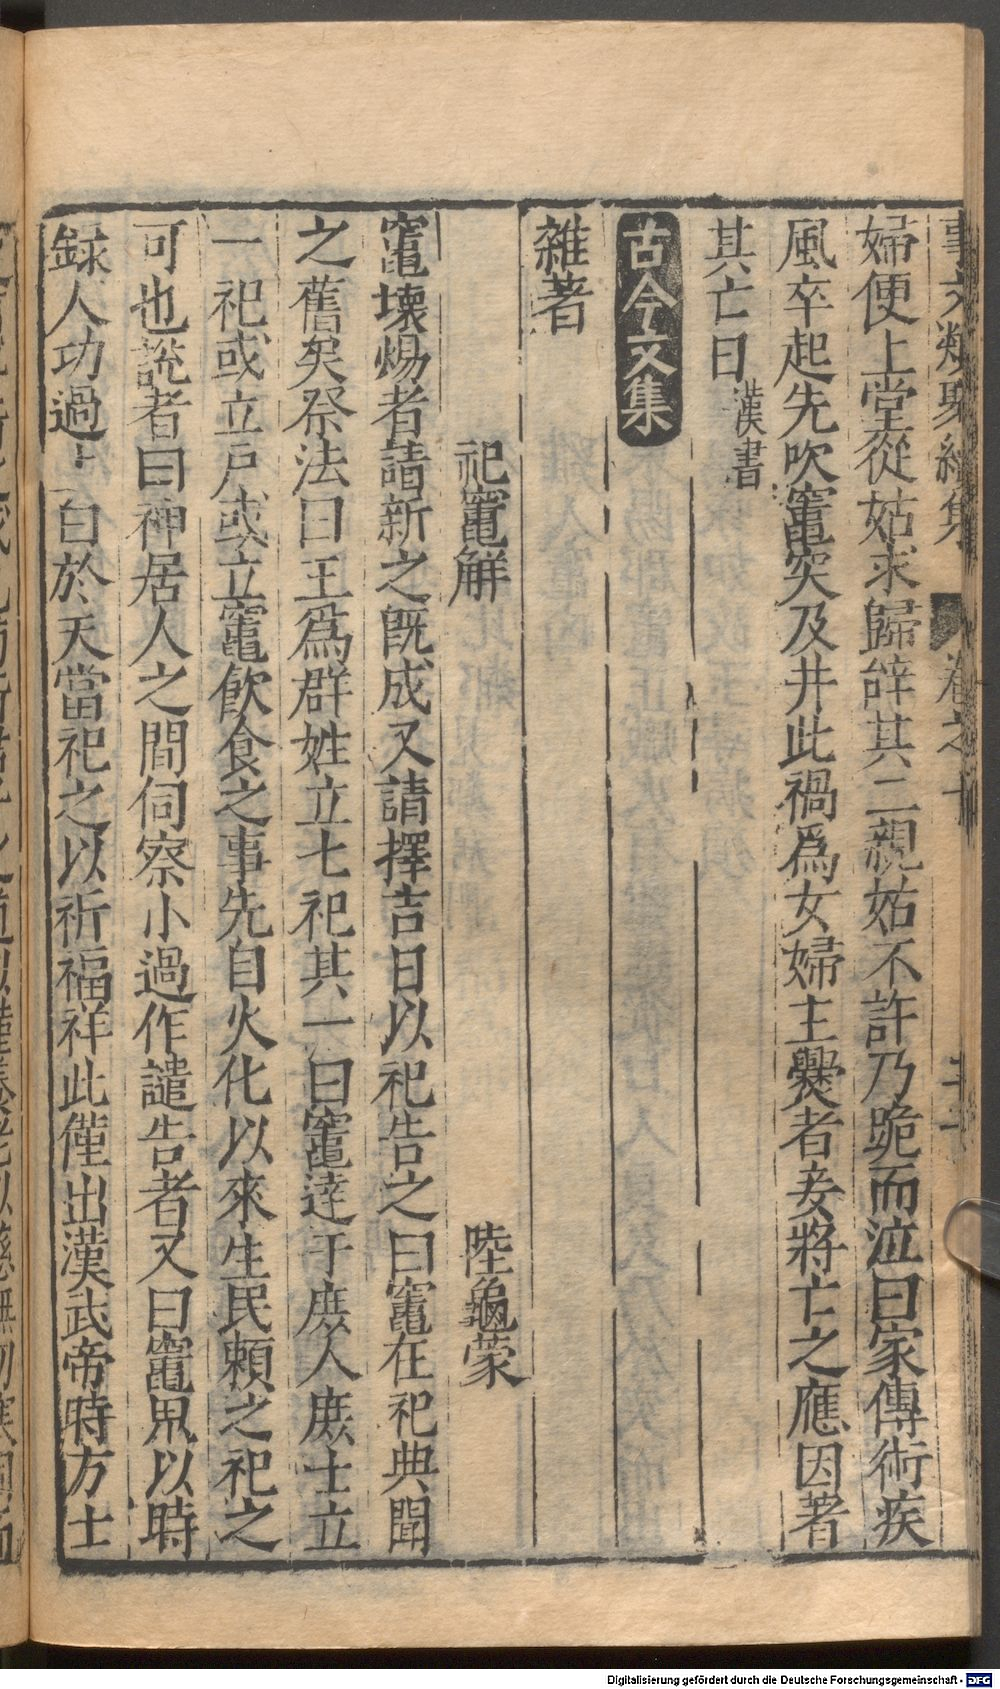 事文類聚續集 卷之十
婦便上堂從姑求歸辭其二親姑不許乃跪而泣曰家傳術疾
風卒起先吹竈突及井此禍爲女婦主爨者妾將亡之應因著
其亡日漢書
古今文集
雜著
祀竈解 陸龜蒙
竈壞煬者請新之旣成又請擇吉日以祀告之曰竈在祀典聞
之舊矣祭法曰王爲群姓立七祀其一曰竈達于庶人庶士立
一祀或立戶或立竈飮食之事先自火化以來生民賴之祀之
可也說者曰神居人之間伺察小過作譴告者又曰竈鬼以時
録人功過上白於天當祀之以祈福祥此僅出漢武帝時方士
Digitalisierung gefördert durch die Deutsche Forschungsgemeinschaft - DFG